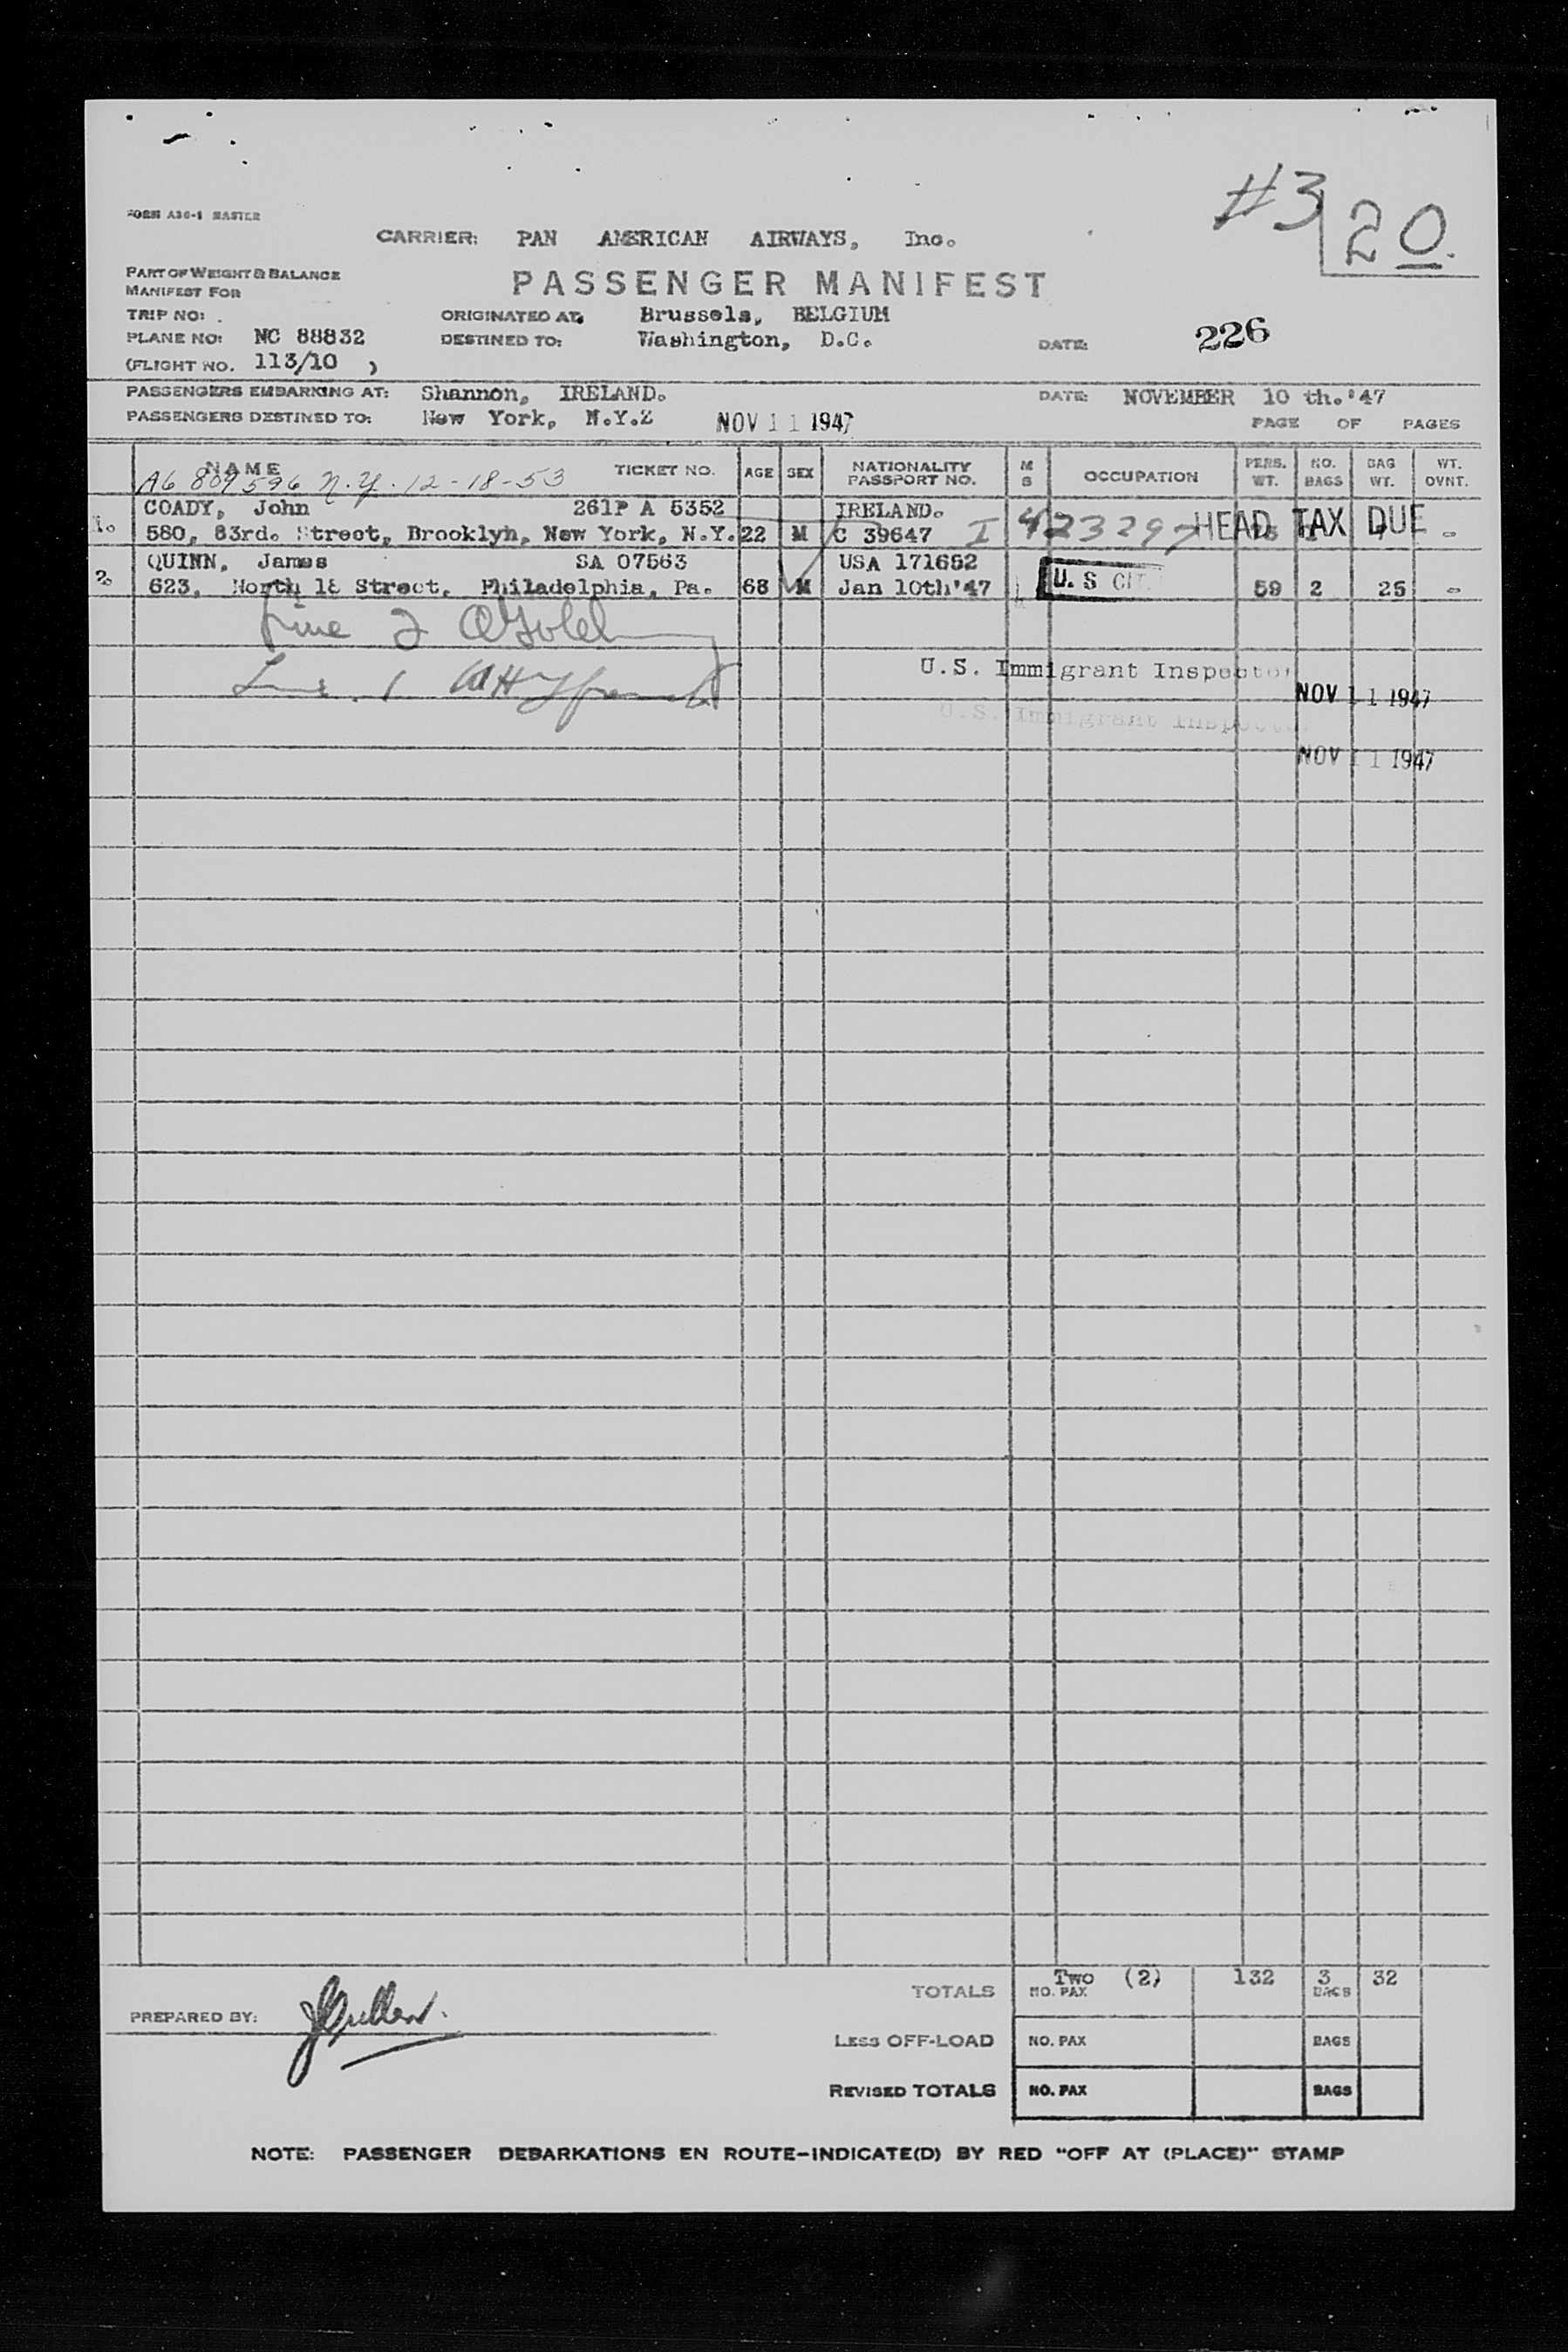 #3
20.
FORM A36-1 MASTER
CARRIER: PAN AMERICAN AIRWAYS, Inc.
PART OF WEIGHT & BALANCE
MANIFEST FOR
PASSENGER MANIFEST
TRIP NO: .
ORIGINATED AT. Brussels, BELGIUM
PLANE NO: NC 88832
DESTINED TO: Washington, D.C.
DATE: 226
(FLIGHT NO. 113/10 )
PASSENGERS EMBARKING AT: Shannon, IRELAND.
DATE: NOVEMBER 10 th.'47
PASSENGERS DESTINED TO: New York, N.Y.Z NOV 11 1947
PAGE OF PAGES
NAME TICKET NO. AGE SEX NATIONALITY PASSPORT NO. M S OCCUPATION PERS. WT. NO. BAGS BAG WT. WT. OVNT.
A6 809 596 N.Y. 12-18-53
COADY, John 261P A 5352 IRELAND.
1. 580, 83rd. Street, Brooklyn, New York, N.Y. 22 M C 39647 I 423297 HEAD TAX DUE -
QUINN, James SA 07563 USA 171652
2. 623, North 18 Street, Philadelphia, Pa. 68 M Jan 10th'47 U.S CIT. 59 2 25 -
Line 2
Line 1
U.S. Immigrant Inspector
NOV 11 1947
U.S. Immigrant Inspector
NOV 11 1947
TOTALS Two (2) NO. PAX 132 3 BAGS 32
PREPARED BY:
LESS OFF-LOAD NO. PAX BAGS
REVISED TOTALS NO. PAX BAGS
NOTE: PASSENGER DEBARKATIONS EN ROUTE-INDICATE(D) BY RED "OFF AT (PLACE)" STAMP